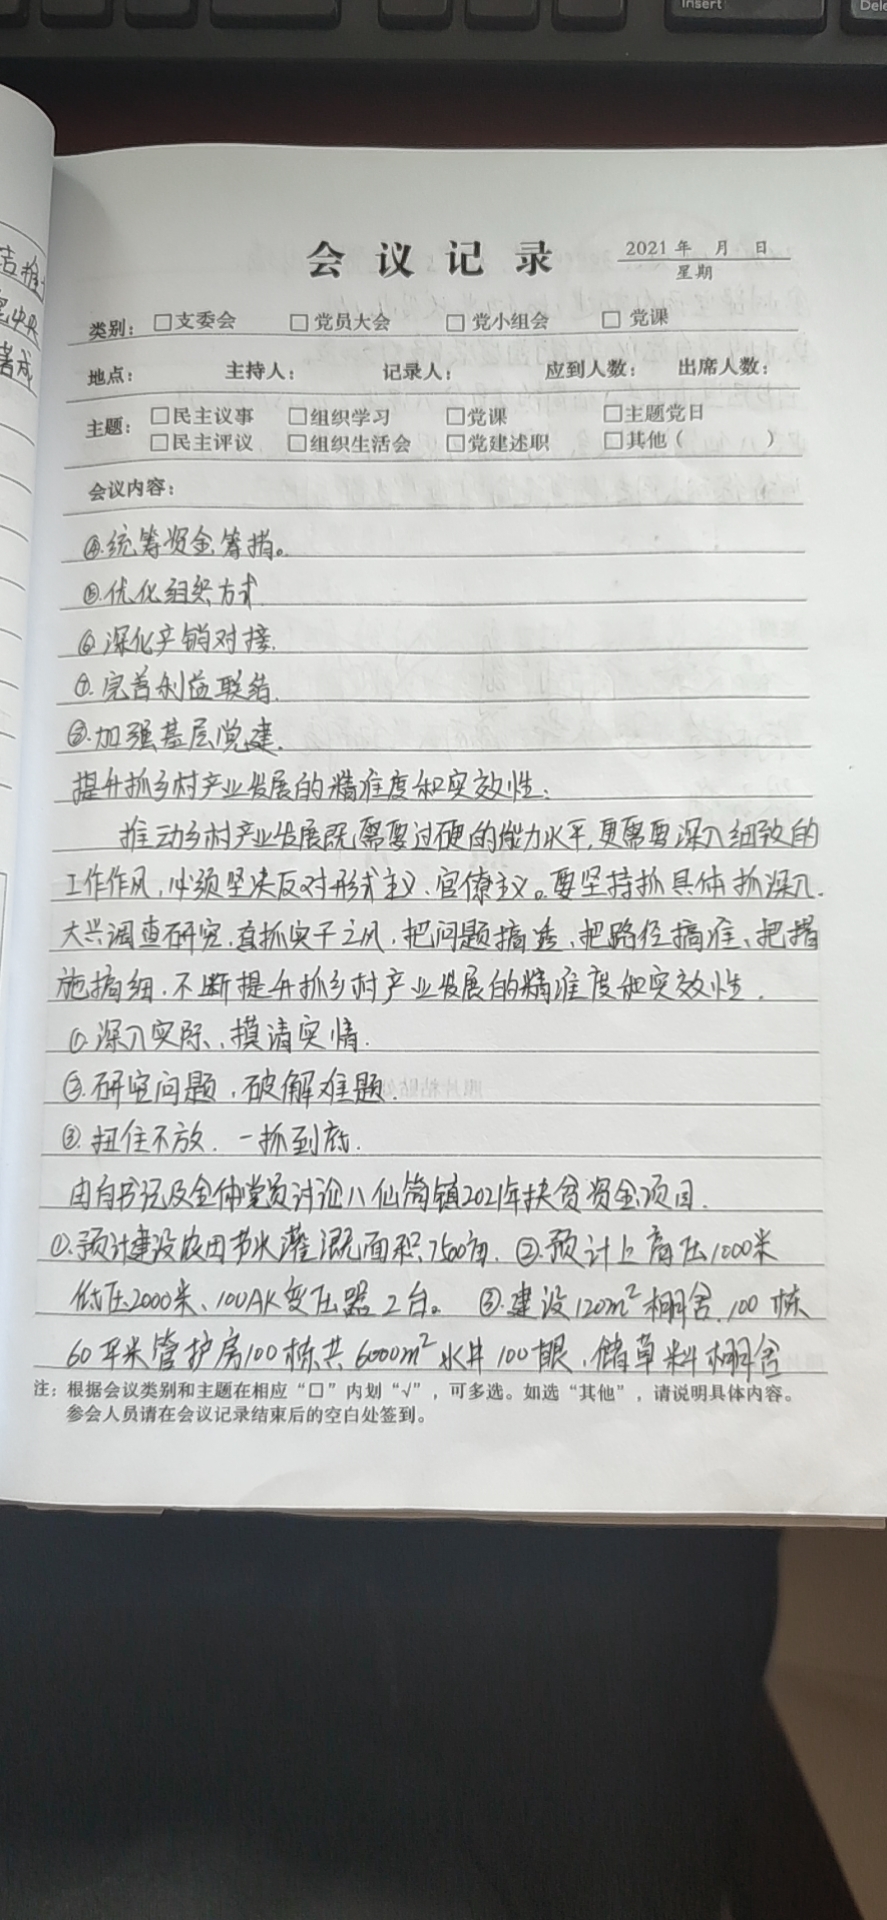 Insert
Dele
会议记录
2021年 月 日
星期
类别： □支委会 □党员大会 □党小组会 □党课
地点： 主持人： 记录人： 应到人数： 出席人数：
主题： □民主议事 □组织学习 □党课 □主题党日
□民主评议 □组织生活会 □党建述职 □其他（ ）
会议内容：
④.统筹资金筹措。
⑤.优化组织方式
⑥深化产销对接.
⑦.完善利益联结.
⑧.加强基层党建.
提升抓乡村产业发展的精准度和实效性：
推动乡村产业发展既需要过硬的能力水平,更需要深入细致的
工作作风,必须坚决反对形式主义、官僚主义。要坚持抓具体抓深入.
大兴调查研究,直抓实干之风,把问题搞透、把路径搞准、把措
施搞细.不断提升抓乡村产业发展的精准度和实效性.
①深入实际、摸清实情.
②.研究问题,破解难题.
③.扭住不放.一抓到底.
由白书记及全体党员讨论八仙筒镇2021年扶贫资金项目.
①.预计建设农田节水灌溉面积7500亩. ②.预计上高压1000米
低压2000米、100AK变压器2台。 ③.建设120m²棚舍.100栋
60平米管护房100栋共6000m²水井100眼、储草料棚舍
注：根据会议类别和主题在相应“□”内划“√”，可多选。如选“其他”，请说明具体内容。
参会人员请在会议记录结束后的空白处签到。